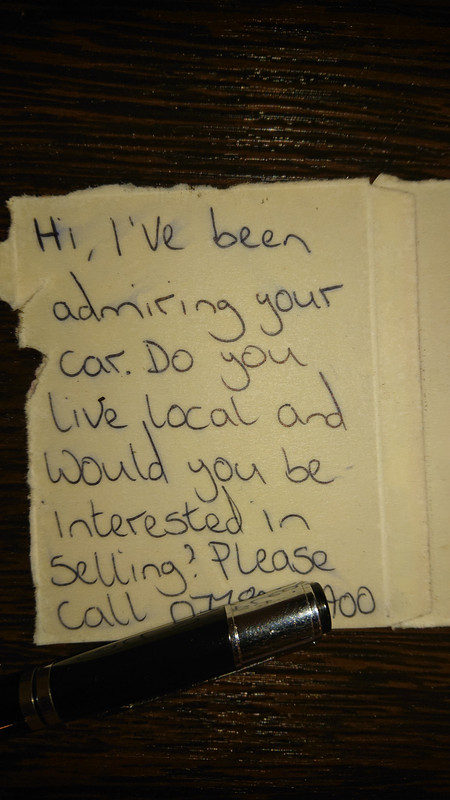 Hi, I've been
admiring your
car. Do you
live local and
would you be
interested in
selling? Please
Call